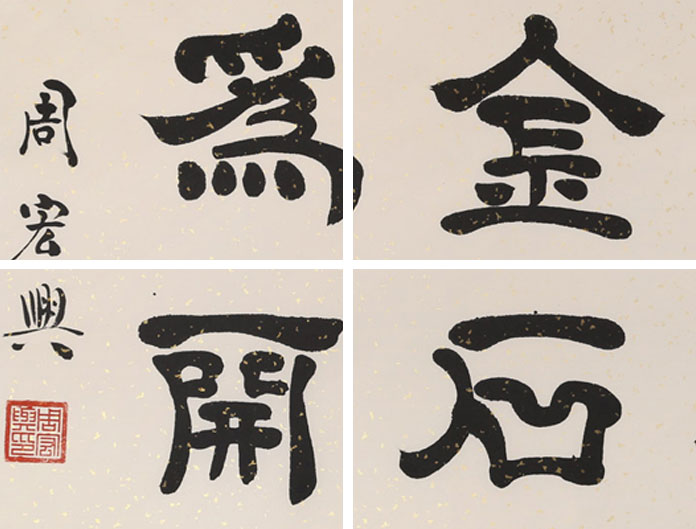 金石
爲開
周宏興
周宏興印